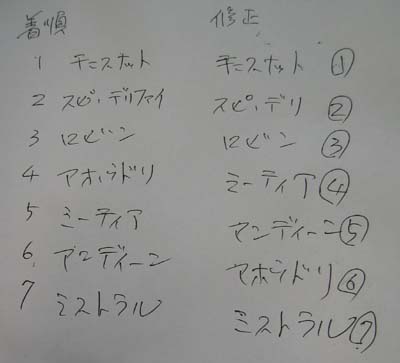 着順 修正
1 テニスナット テニスナット ①
2 スピ・デリファイ スピ・デリ ②
3 ロビン ロビン ③
4 アホウドリ ミーティア ④
5 ミーティア アンディーン ⑤
6 アンディーン アホウドリ ⑥
7 ミストラル ミストラル ⑦